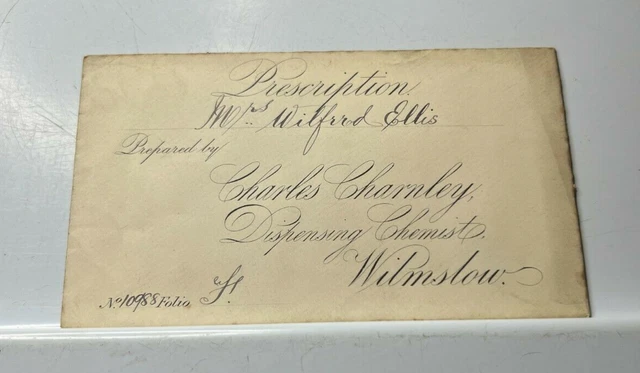 Prescription
Mrs Wilfrid Ellis
Prepared by
Charles Charnley,
Dispensing Chemist.
Wilmslow.
No 10988 Folio